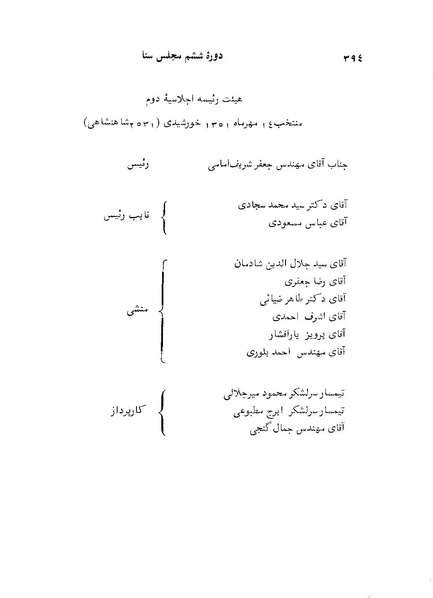 ۳۹٤ دورهٔ ششم مجلس سنا
هیئت رئیسه اجلاسیهٔ دوم
منتخب ۱٤ مهرماه ۱۳۵۱ خورشیدی (۲۵۳۱ شاهنشاهی)
جناب آقای مهندس جعفر شریف‌امامی رئیس
آقای دکتر سید محمد سجادی
نایب رئیس
آقای عباس مسعودی
آقای سید جلال الدین شادمان
آقای رضا جعفری
آقای دکتر طاهر ضیائی
منشی
آقای اشرف احمدی
آقای پرویز یارافشار
آقای مهندس احمد بلوری
تیمسار سرلشکر محمود میرجلالی
تیمسار سرلشکر ایرج مطبوعی
کارپرداز
آقای مهندس جمال گنجی